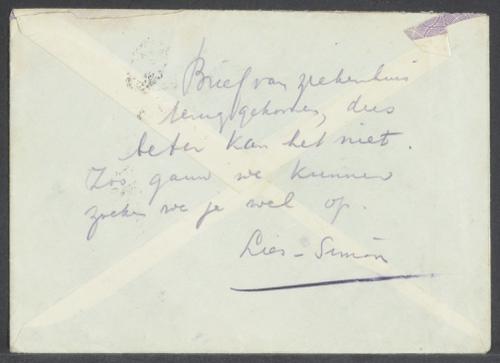 Brief van ziekenhuis
terug gekomen, dus
beter kan het niet.
Zoo gauw we kunnen
zoeken we je wel op.
Lies - Simon